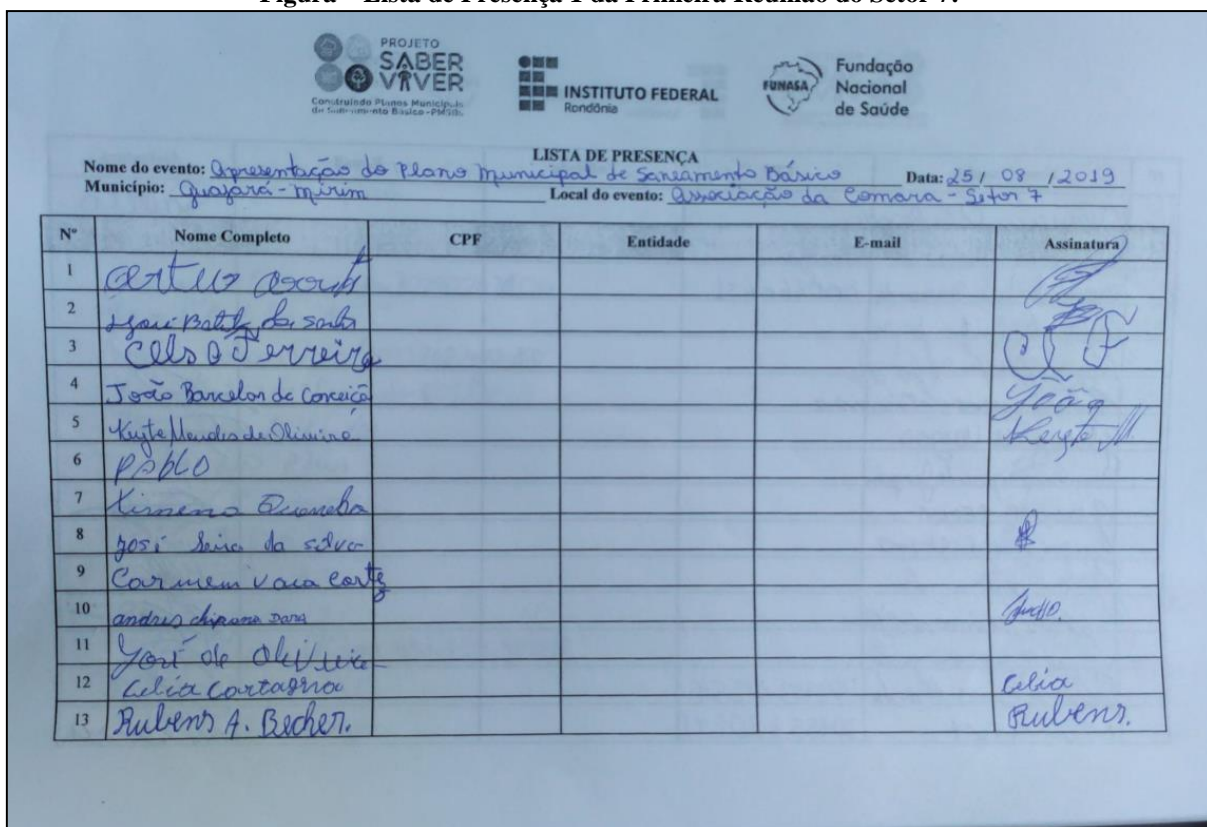 Figura – Lista de Presença 1 da Primeira Reunião do Setor 7.
PROJETO
SABER
VIVER
Construindo Planos Municipais
de Saneamento Básico - PMSB.
INSTITUTO FEDERAL
Rondônia
FUNASA
Fundação
Nacional
de Saúde
LISTA DE PRESENÇA
Nome do evento: Apresentação do Plano Municipal de Saneamento Básico Data: 25 / 08 / 2019
Município: Guajará-Mirim Local do evento: Associação da Comara - Setor 7
Nº Nome Completo CPF Entidade E-mail Assinatura
1
2 dos
3 Celso Ferreira
4 João Barcelon da Conceição João
5 Mendes de Oliveira
6 Pablo
7 Ximena
8 José da silva
9 Carmem Vaca Cortez
10 andres chipana
11 José de Oliveira
12 Celia Cartagena Celia
13 Rubens A. Becher. Rubens.